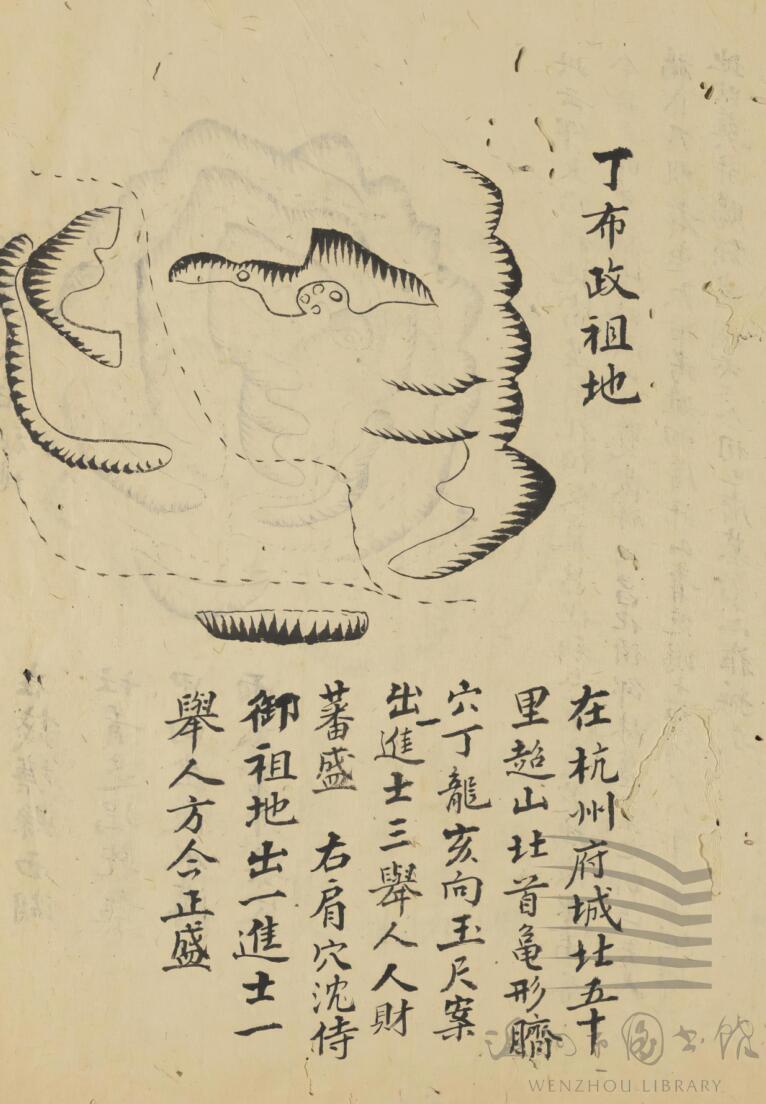 丁布政祖地
在杭州府城北五十
里超山北首龟形臍
穴丁龍亥向玉尺案
出一進士三舉人人財
蕃盛　右肩穴沈侍
御祖地出一進士一
舉人方今正盛
温州市圖書館
WENZHOU LIBRARY